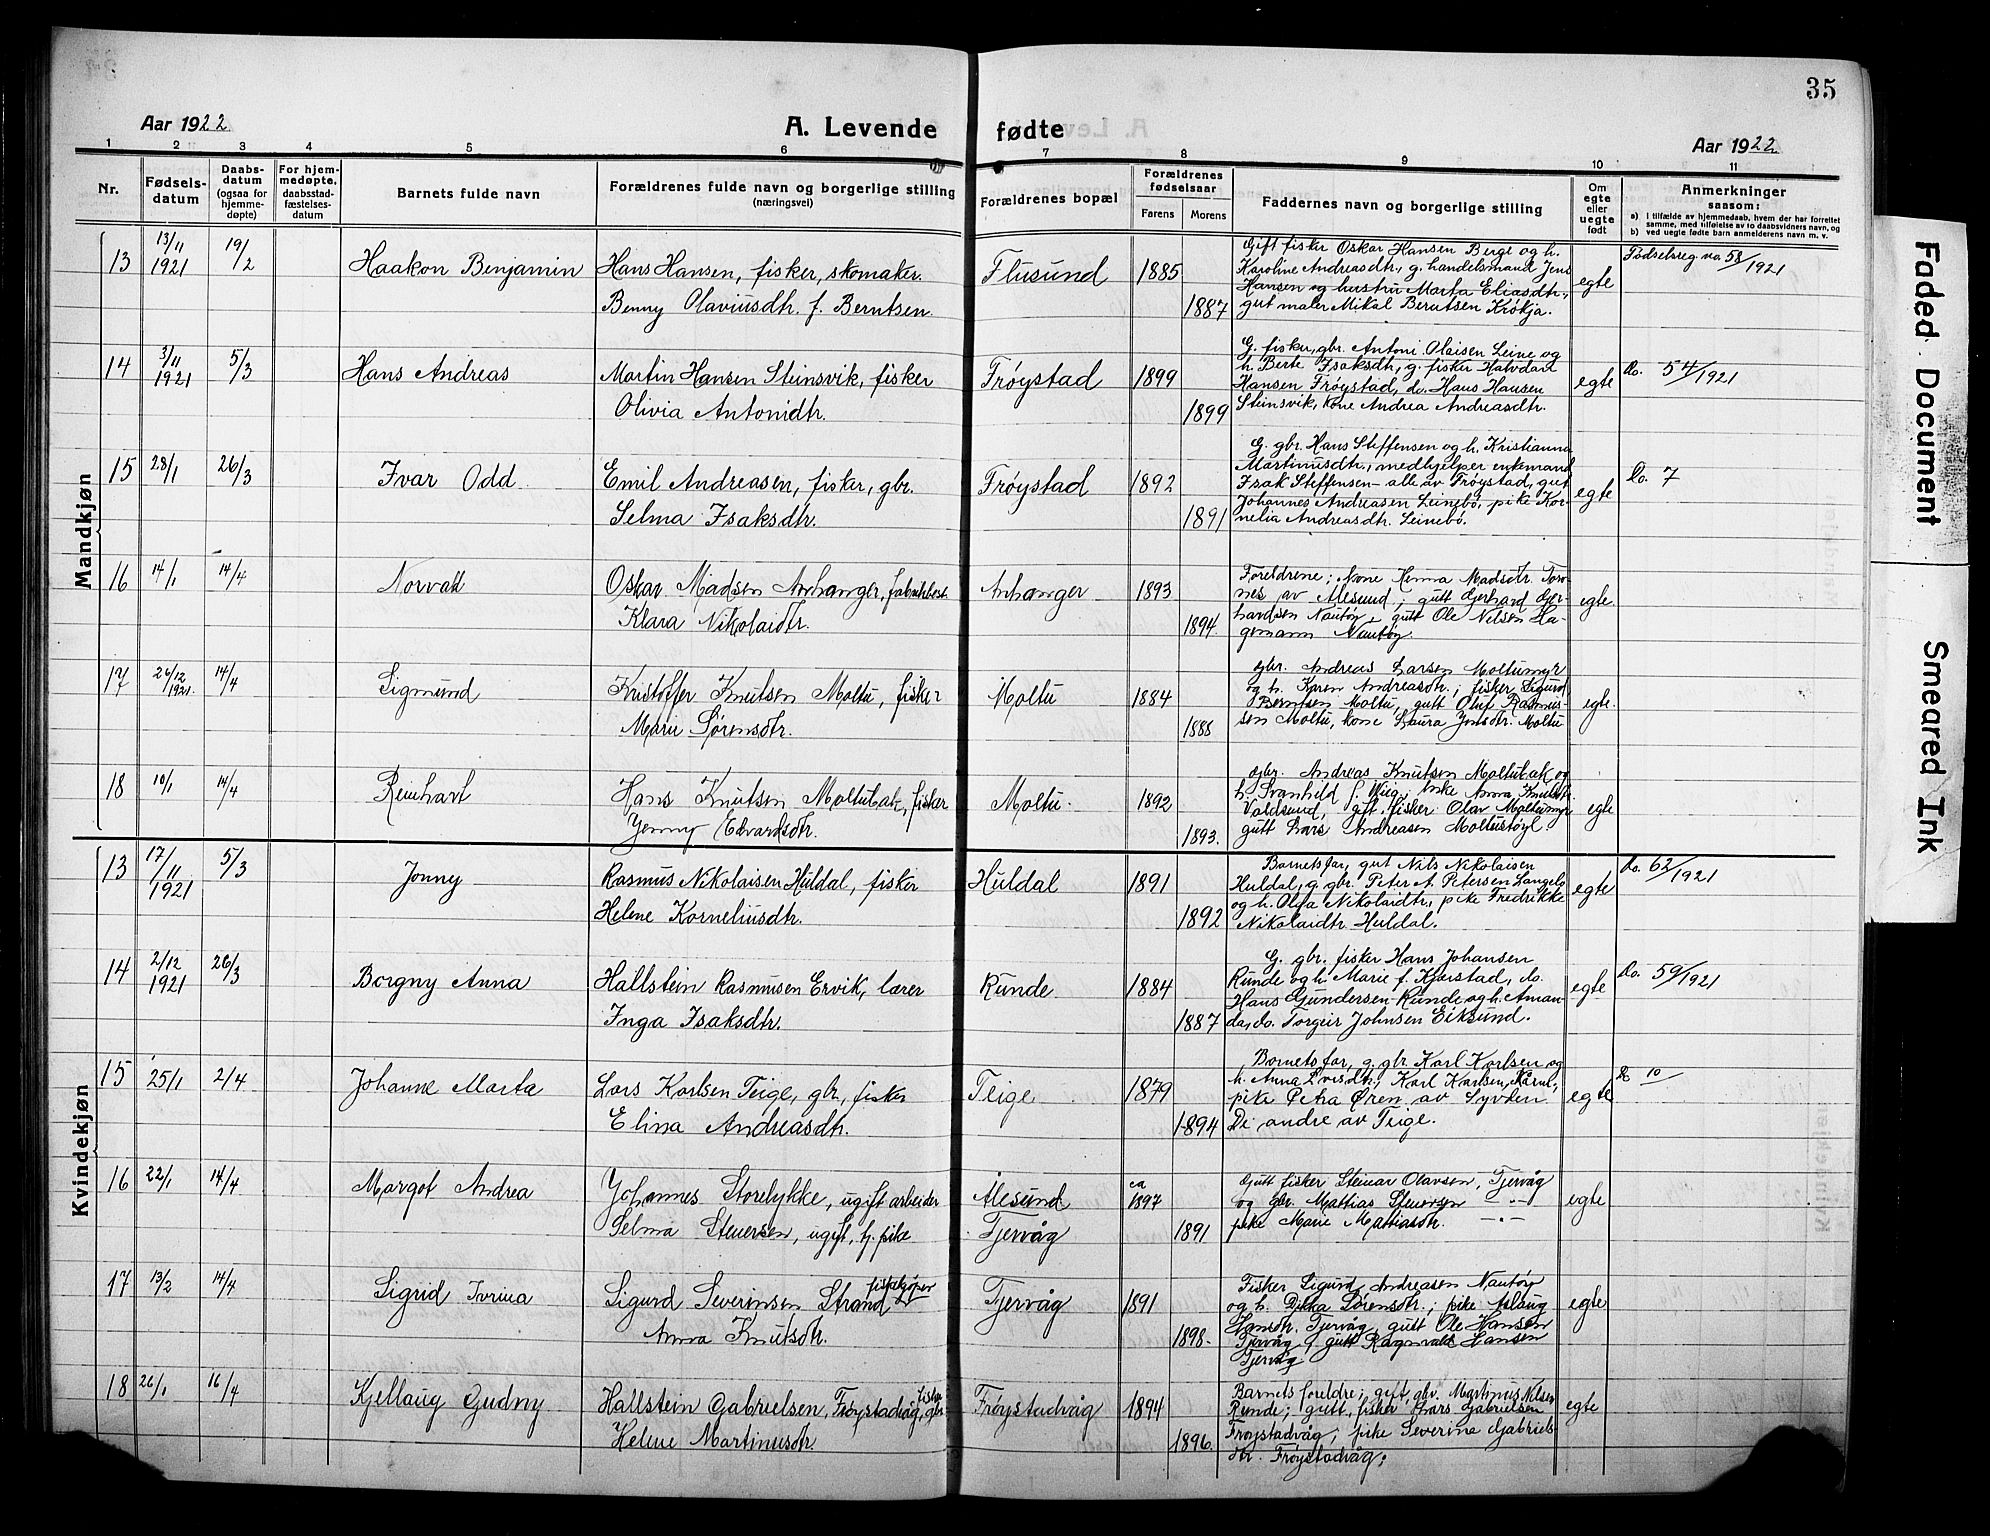 35
Aar 1922
A. Levende fødte
Aar 1922
1 2 3 4 5 6 7 8 9 10 11
Nr.
Fødsels-
datum
Daabs-
datum
(ogsaa for
hjemme-
døpte)
For hjem-
medøpte,
daabsstad-
fæstelses-
datum
Barnets fulde navn
Forældrenes fulde navn og borgerlige stilling
(næringsvei)
Forældrenes bopæl
Forældrenes
fødselsaar
Farens Morens
Faddernes navn og borgerlige stilling
Om
egte
eller
uegte
født
Anmerkninger
saasom:
a) i tilfælde av hjemmedaab, hvem der har forrettet
samme, med tilføielse av to daabsvidners navn, og
b) ved uegte fødte barn anmelderens navn m. v.
Mandkjøn
13 13/11 1921 19/2 Haakon Benjamin
Hans Hansen, fisker, skomaker.
Benny Olaviusdtr. f. Berntsen.
Flusund 1885 1887
Gift fisker Oskar Hansen Berge og h.
Karoline Andreasdtr., g. handelsmand Jens
Hansen og hustru Marta Eliasdtr.,
gut maler Mikal Berntsen Krökja.
egte
Fødselsreg no. 58/1921
14 3/11 1921 5/3 Hans Andreas
Martin Hansen Steinsvik, fisker
Olivia Antonidtr.
Frøystad 1899 1899
G. fisker, gbr. Antoni Olaisen Leine og
h. Berte Isaksdtr., g. fisker Halvdan
Hansen Frøystad, do. Hans Hansen
Steinsvik, kone Andrea Andreasdtr.
egte
Do. 54/1921
15 28/1 26/3 Ivar Odd.
Emil Andreasen, fisker, gbr.
Selma Isaksdtr.
Frøystad 1892 1891
G. gbr. Hans Steffensen og h. Kristianna
Martinusdtr., medhjelper enkemand
Isak Steffensen - alle av Frøystad, gut
Johannes Andreasen Leinebö, pike Kor-
nelia Andreasdtr. Leinebö.
egte
Do. 7
16 14/1 14/4 Norvald
Oskar Madsen Arhanger,
Klara Nikolaidtr.
Arhanger 1893 1894
Foreldrene; kone Hanna Madsdtr.
av Alesund; gutt Gerhard Ger-
hardsen Nautøy, gutt Ole Nilsen Ha-
gemann Nautøy.
egte
17 26/12 1921 14/4 Sigmund
Kristoffer Knutsen Moltu, fisker
Marie Sørensdtr.
Moltu 1884 1888
gbr. Andreas Larsen Moltumyr
og h. Karen Andreasdtr.; fisker Sigurd
Berntsen Moltu, gutt Oluf Rasmus-
sen Moltu, kone Laura Jensdtr. Moltu
egte.
18 10/1 14/4 Reinhart
Hans Knutsen Moltubak, fisker
Jenny Edvardsdtr.
Moltu. 1892 1893.
gbr. Andreas Knutsen Moltubak og
h. Svanhild f. Vig; Anna Knutsdtr.
Valdsund, gift fisker Olav Moltumyr
gutt Lars Andreasen Moltustøyl.
egte
Kvindekjøn
13 17/11 1921 5/3 Jonny
Rasmus Nikolaisen Huldal, fisker
Helene Korneliusdtr.
Huldal 1891 1892
Barnets far, gut Nils Nikolaisen
Huldal, g. gbr. Peter A. Petersen
og h. Olga Nikolaidtr., pike Fredrikke
Nikolaidtr. Huldal.
egte
Do. 62/1921
14 2/12 1921 26/3 Borgny Anna
Hallstein Rasmusen Ervik, lærer
Inga Isaksdtr.
Runde. 1884 1887
G. gbr. fisker Hans Johansen
Runde og h. Marie f. Kjerstad, do.
Hans Gundersen Runde og h. Aman-
da, do. Torgeir Johnsen Eiksund.
egte
Do. 59/1921
15 25/1 2/4 Johanne Marta
Lars Karlsen Teige, gbr., fisker
Elina Andreasdtr.
Teige. 1879 1894
Barnets far, g. gbr. Karl Karlsen og
h. Anna Larsdtr., Karl Karlsen,
pike Petra Øren av Syvden.
De andre av Teige.
egte
Do 10/
16 22/1 14/4 Margot Andrea
Johannes Storelykke, ugift arbeider
Selma Steuersen, ugift, tj. pike
Alesund
Tjervåg
ca 1897 1891
Gutt fisker Steinar Olavsen, Tjervåg
og gbr. Mattias Steuersen - " -
pike Marie Mattiasdtr. - " -
egte
17 13/2 14/4 Sigrid Ivrina
Sigurd Severinsen Strand fiskekjøper
Anna Knutsdtr.
Tjervåg 1891 1898.
Fisker Sigurd Andreasen Nautøy
og h. Dikka Sørensdtr.; pike Aslaug
Hansdtr. Tjervåg, gutt Ole Hansen
Tjervåg, gutt Ragnvald Hansen
Tjervåg
egte
18 26/1 16/4 Kjellaug Gudny.
Hallstein Gabrielsen, Frøystadvåg, fisker, gbr.
Helene Martinusdtr.
Frøystadvåg 1894 1896.
Barnets foreldre; gift gbr. Martinus Nilsen
Runde; gutt, fisker Lars Gabrielsen
Frøystadvåg; pike Severine Gabriels-
dtr. Frøystadvåg;
egte
Faded Document
Smeared Ink